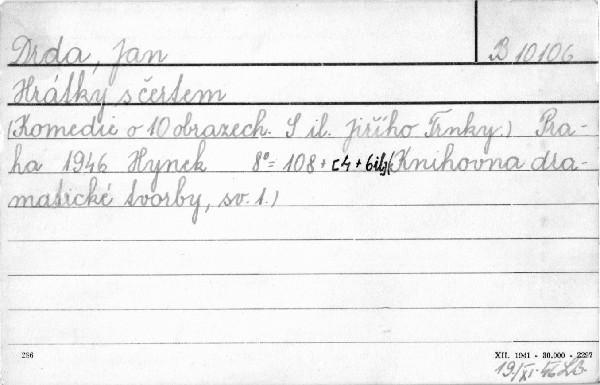 Drda, Jan B 10106
Hrátky s čertem
(Komedie o 10 obrazech. S il. Jiřího Trnky.) Pra-
ha 1946 Hynek 8° = 108 + [4 + 6 il.] (Knihovna dra-
matické tvorby, sv. 1.)
286 XII. 1941 - 30.000 - 2297
19./XI. 46